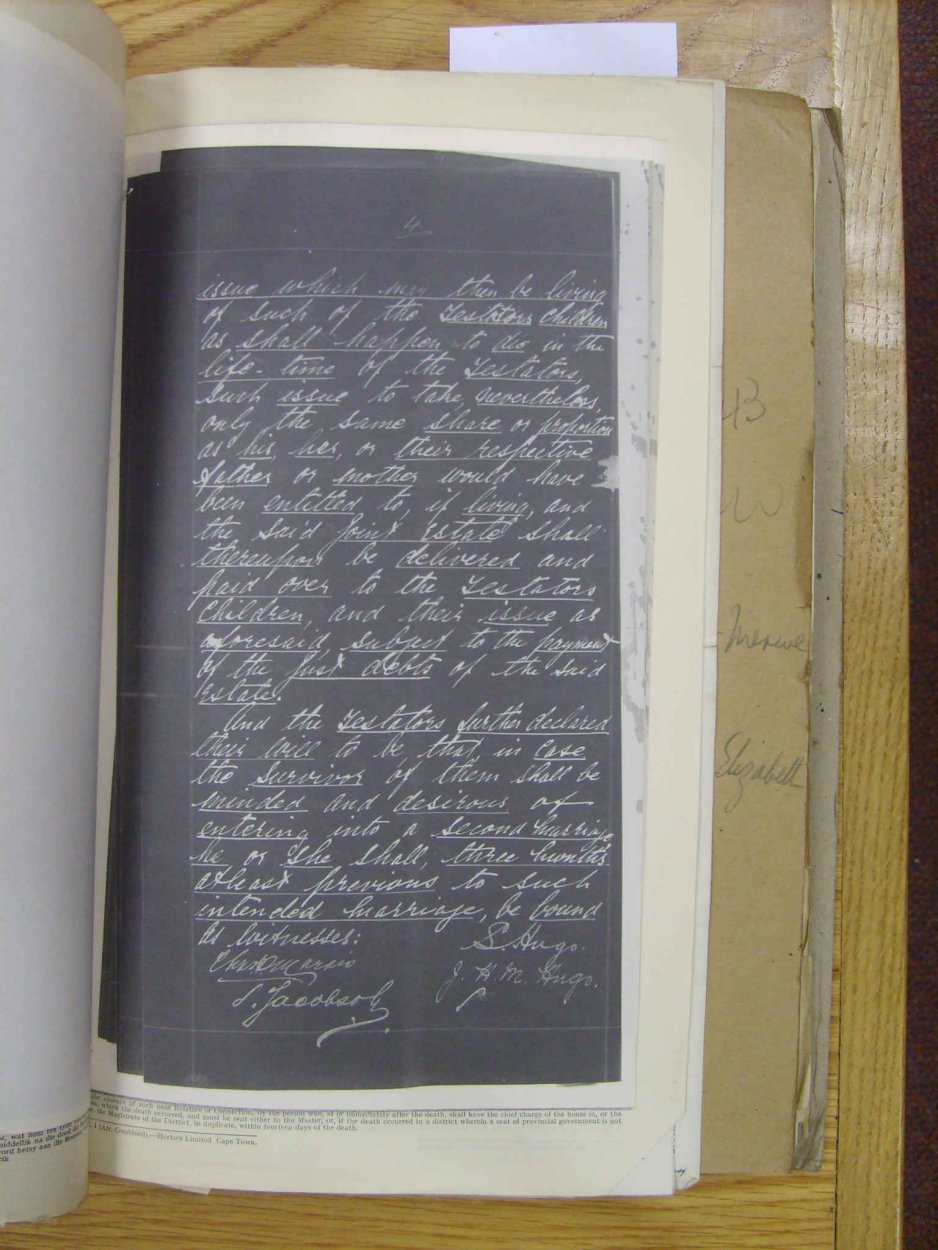 4.
issue which may then be living
of such of the Testators children
as shall happen to die in the
life-time of the Testators,
such issue to take nevertheless,
only the same share or proportion
as his, her, or their respective
father or mother would have
been entitled to, if living, and
the said Joint Estate shall
thereupon be delivered and
paid over to the Testators
children, and their issue as
aforesaid, subject to the payment
of the just debts of the said
Estate.
And the Testators further declared
their will to be that, in case
the Survivor of them shall be
minded and desirous of
entering into a second marriage,
he or she shall, three months
atleast previous to such
intended marriage, be bound
As Witnesses:
S. Hugo.
J. H. M. Hugo.
S. Jacobsoh
B
W
Merwe
Elizabeth
the absence of such near Relative or Connection, by the person who, at or immediately after the death, shall have the chief charge of the house in, or the
which the death occurred, and must be sent either to the Master, or, if the death occurred in a district wherein a seat of provincial government is not
the Magistrate of the District, in duplicate, within fourteen days of the death.
1 [Afr. Combined].—Hortors Limited Cape Town.